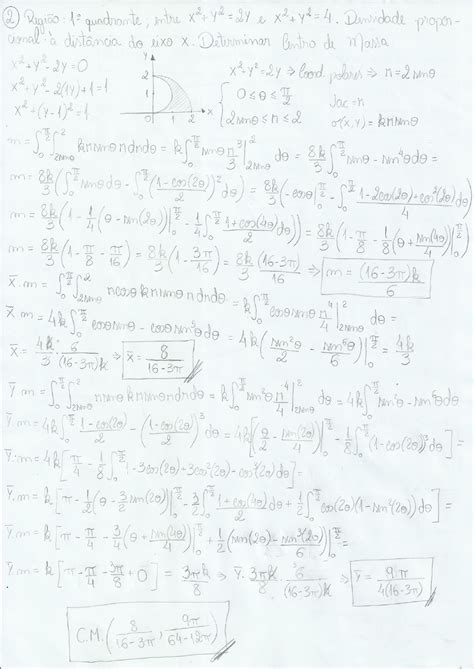 ② Região: 1º quadrante, entre x²+y²=2y e x²+y²=4. Densidade propor-
cional à distância do eixo x. Determinar Centro de Massa
x²+y²-2y=0
x²+y²-2(1y)+1=1
x²+(y-1)²=1
y
2
1
0 1 2 x
x²+y²=2y ⇒ Coord. polares ⇒ r=2senθ
{ 0≤θ≤π/2
2senθ≤r≤2
Jac=r
σ(x,y)=krsenθ
m=∫₀^{π/2}∫_{2senθ}^{2} krsenθ r dr dθ = k∫₀^{π/2} senθ r³/3 |_{2senθ}^{2} dθ = 8k/3 ∫₀^{π/2} senθ-sen⁴θ dθ=
m=8k/3 (∫₀^{π/2} senθdθ-∫₀^{π/2} ((1-cos(2θ))/2)² dθ) = 8k/3 (-cosθ|₀^{π/2}-∫₀^{π/2} (1-2cos(2θ)+cos²(2θ))/4 dθ)
m=8k/3 (1-1/4(θ-sen(2θ))|₀^{π/2}-1/4∫₀^{π/2} (1+cos(4θ))/2 dθ)=8k/3 (1-π/8-1/8(θ+sen(4θ)/4)|₀^{π/2})
m=8k/3 (1-π/8-π/16)=8k/3 (1-3π/16)=8k/3 ((16-3π)/16) ⇒ m=(16-3π)k/6
x̄.m=∫₀^{π/2}∫_{2senθ}^{2} rcosθ krsenθ r dr dθ = k∫₀^{π/2} cosθsenθ r⁴/4 |_{2senθ}^{2} dθ=
x̄.m=4k∫₀^{π/2} cosθsenθ-cosθsen⁵θ dθ = 4k(sen²θ/2-sen⁶θ/6)|₀^{π/2}=4k/3
x̄=4k/3 . 6/(16-3π)k ⇒ x̄=8/(16-3π)
ȳ.m=∫₀^{π/2}∫_{2senθ}^{2} rsenθ krsenθ r dr dθ = k∫₀^{π/2} sen²θ r⁴/4 |_{2senθ}^{2} dθ=4k∫₀^{π/2} sen²θ-sen⁶θdθ
ȳ.m=4k∫₀^{π/2} (1-cos(2θ))/2-((1-cos(2θ))/2)³ dθ=4k[(θ/2-sen(2θ)/4)|₀^{π/2}-1/8∫₀^{π/2}(1-cos(2θ))³dθ]=
ȳ.m=4k[π/4-1/8∫₀^{π/2} 1-3cos(2θ)+3cos²(2θ)-cos³(2θ)dθ]=
ȳ.m=k[π-1/2(θ-3/2 sen(2θ))|₀^{π/2}-3/2∫₀^{π/2} (1+cos(4θ))/2 dθ+1/2∫₀^{π/2} cos(2θ)(1-sen²(2θ))dθ]=
ȳ.m=k[π-π/4-3/4(θ+sen(4θ)/4)|₀^{π/2}+1/2(sen(2θ)-sen³(2θ)/6)|₀^{π/2}]=
ȳ.m=k[π-π/4-3π/8+0]=3πk/8 ⇒ ȳ.3πk/8 . 6/(16-3π)k ⇒ ȳ=9π/4(16-3π)
C.M.(8/(16-3π), 9π/(64-12π))